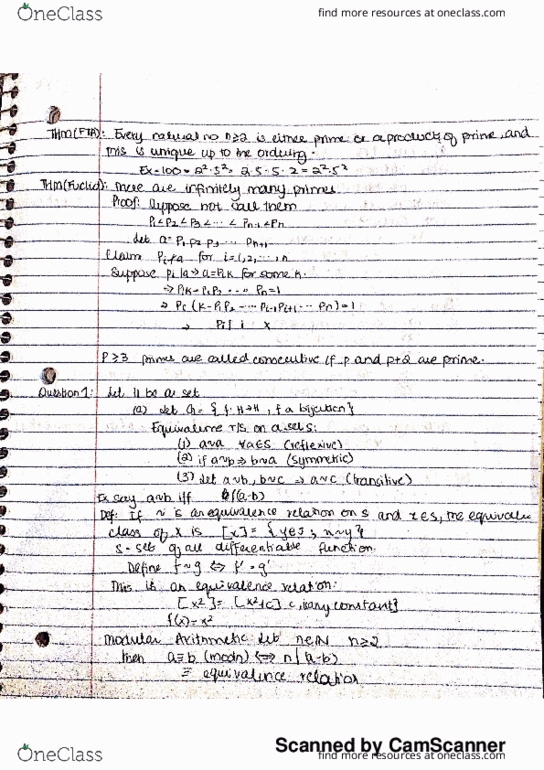 OneClass
find more resources at oneclass.com
Thm(FTA): Every natural no n≥2 is either prime or a products of prime, and
this is unique up to the ordering.
Ex-100 = 2²·5² = 2·5·5·2 = 2²·5²
Thm(Euclid): There are infinitely many primes
Proof: Suppose not call them
P₁<P₂<P₃<...<Pₙ₋₁<Pₙ
let a= P₁P₂P₃... Pₙ+1
Claim Pᵢ∤a for i=1,2,...,n
Suppose Pᵢ|a ⇒ a=PᵢK for some K.
⇒ PᵢK-P₁P₂....Pₙ=1
⇒ Pᵢ(K-P₁P₂...Pᵢ₋₁Pᵢ₊₁...Pₙ)=1
⇒ Pᵢ| 1 X
P≥3 primes are called consecutive if p and p+2 are prime.
Question 1: let H be a set
(a) let G = { f: H→H, f a bijection}
Equivalence r/s on a set S:
(1) a~a ∀a∈S (reflexive)
(2) if a~b ⇒ b~a (symmetric)
(3) let a~b, b~c ⇒ a~c (transitive)
Ex say a~b iff 8|(a-b)
Def: If ~ is an equivalence relation on S and x∈S, the equivalence
class of x is [x]= {y∈S; x~y}
S = sets of all differentiable function.
Define f~g ⇔ f' = g'
This is an equivalence relation:
[x²]= [x²+c] c, any constant}
f(x)=x²
modular Arithmetic let n∈N n≥2
then a≡b (mod n) ⇔ n|(a-b)
≡ equivalence relation
Scanned by CamScanner
OneClass
find more resources at oneclass.com